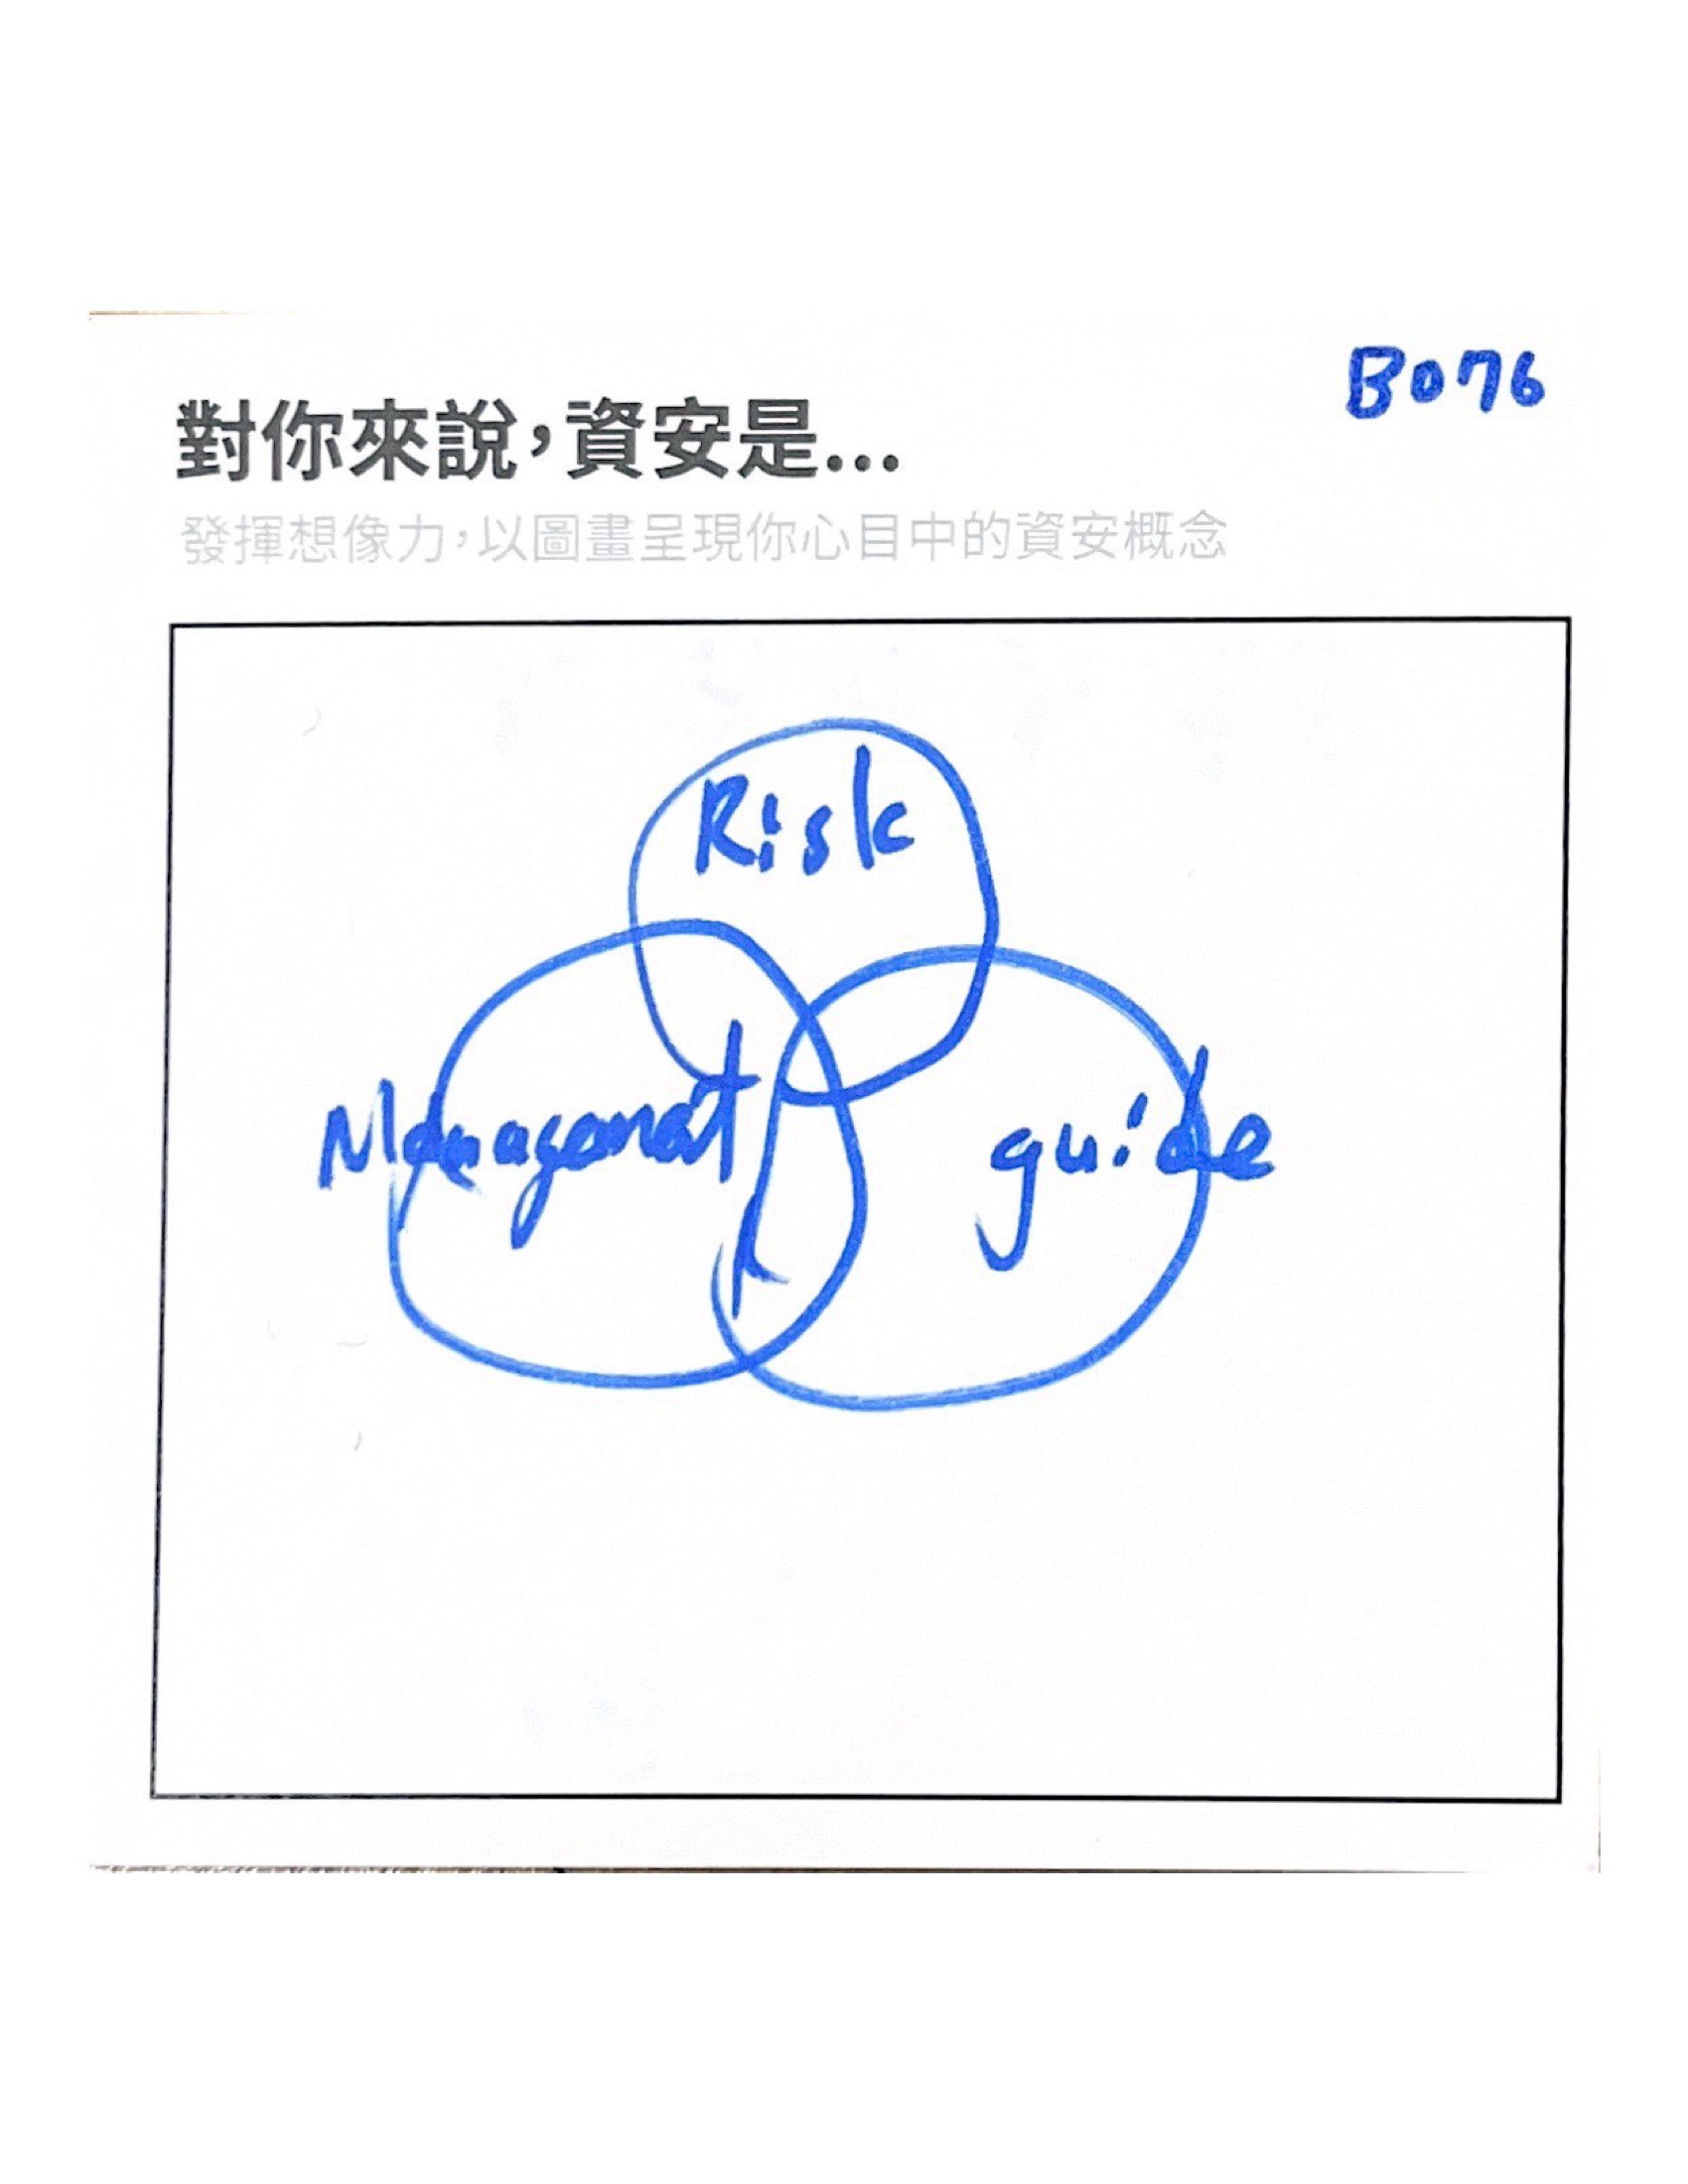 B076
對你來說，資安是...
發揮想像力，以圖畫呈現你心目中的資安概念
Risk
Managemet
guide